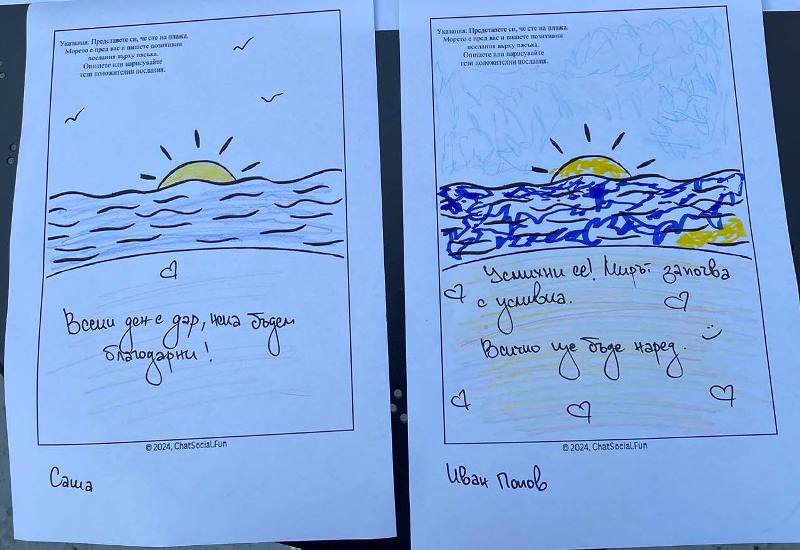 Указания: Представете си, че сте на плажа.
Морето е пред вас и пишете позитивни
послания върху пясъка.
Опишете или нарисувайте
тези положителни послания.
Всеки ден е дар, нека бъдем
благодарни!
© 2024, ChatSocial.Fun
Саша
Указания: Представете си, че сте на плажа.
Морето е пред вас и пишете позитивни
послания върху пясъка.
Опишете или нарисувайте
тези положителни послания.
Усмихни се! Мирът започва
с усмивка.
Всичко ще бъде наред.
© 2024, ChatSocial.Fun
Иван Попов